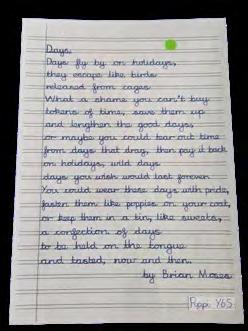 Days.
Days fly by on holidays,
they escape like birds
released from cages
What a shame you can't buy
tokens of time, save them up
and lengthen the good days,
or maybe you could tear out time
from days that drag, then pay it back
on holidays, wild days
days you wish would last forever
You could wear these days with pride,
fasten them like poppies on your coat,
or keep them in a tin, like sweets,
a confection of days
to be held on the tongue
and tasted, now and then.
by Brian Moses
Y6S